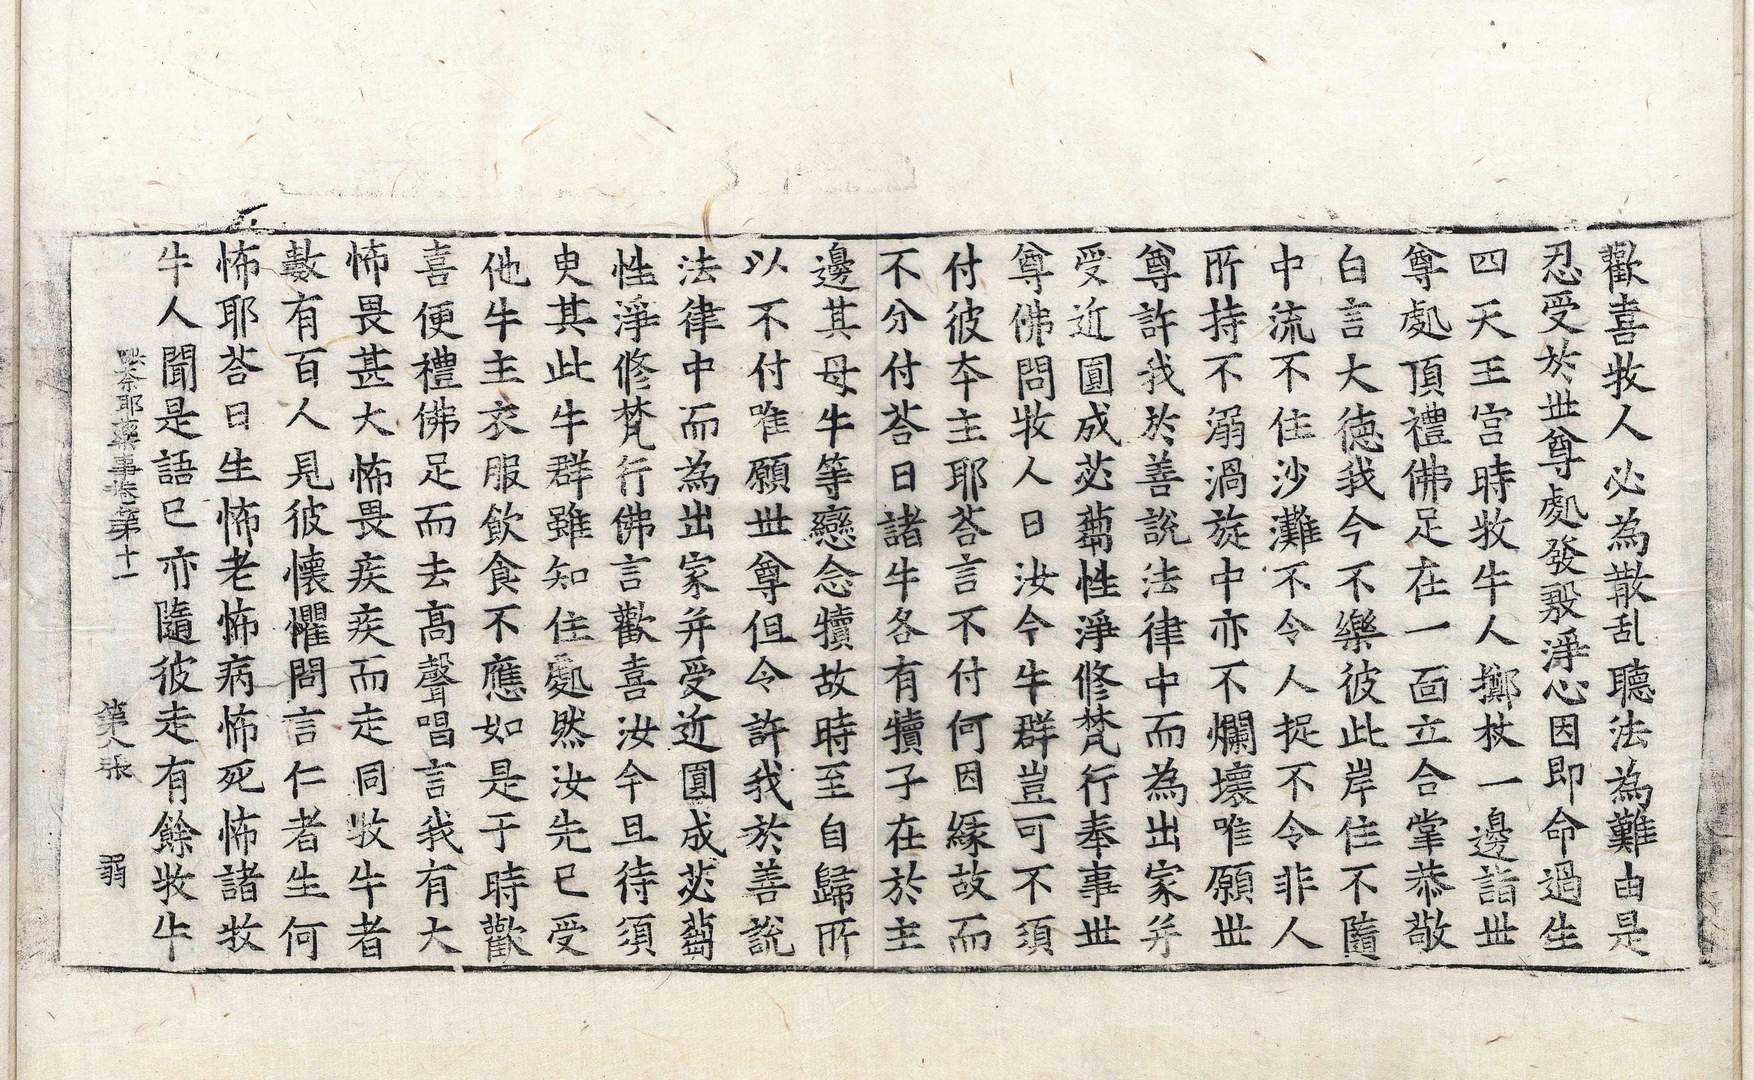 歡喜牧人必為散乱聽法為難由是
忍受於世尊處發殷淨心因即命過生
四天王宮時牧牛人擲杖一邊詣世
尊處頂禮佛足在一面立合掌恭敬
白言大德我今不樂彼此岸住不隨
中流不住沙灘不令人捉不令非人
所持不溺渦旋中亦不爛壞唯願世
尊許我於善說法律中而為出家并
受近圓成苾蒭性淨修梵行奉事世
尊佛問牧人曰汝今牛群豈可不須
付彼本主耶荅言不付何因緣故而
不分付荅曰諸牛各有犢子在於主
邊其母牛等戀念犢故時至自歸所
以不付唯願世尊但令許我於善說
法律中而為出家并受近圓成苾蒭
性淨修梵行佛言歡喜汝今且待須
臾其此牛群雖知住處然汝先已受
他牛主衣服飲食不應如是于時歡
喜便禮佛足而去高聲唱言我有大
怖畏甚大怖畏疾疾而走同牧牛者
數有百人見彼懷懼問言仁者生何
怖耶荅曰生怖老怖病怖死怖諸牧
牛人聞是語已亦隨彼走有餘牧牛
奈耶藥事卷第十一 第八張 弱